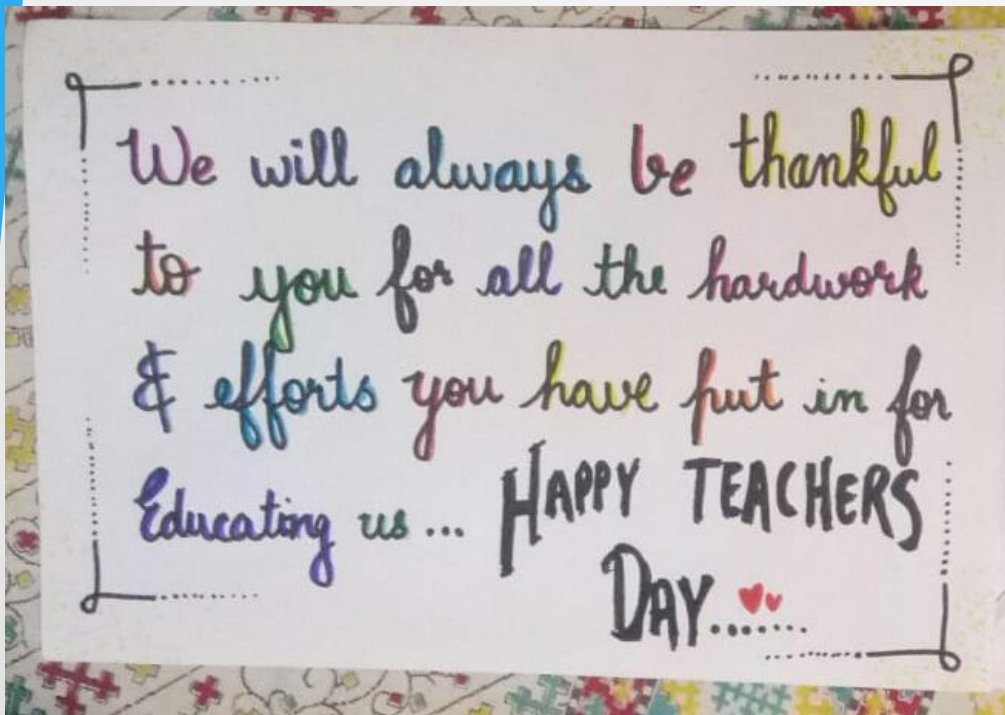 We will always be thankful
to you for all the hardwork
& efforts you have put in for
Educating us... HAPPY TEACHERS
DAY.......